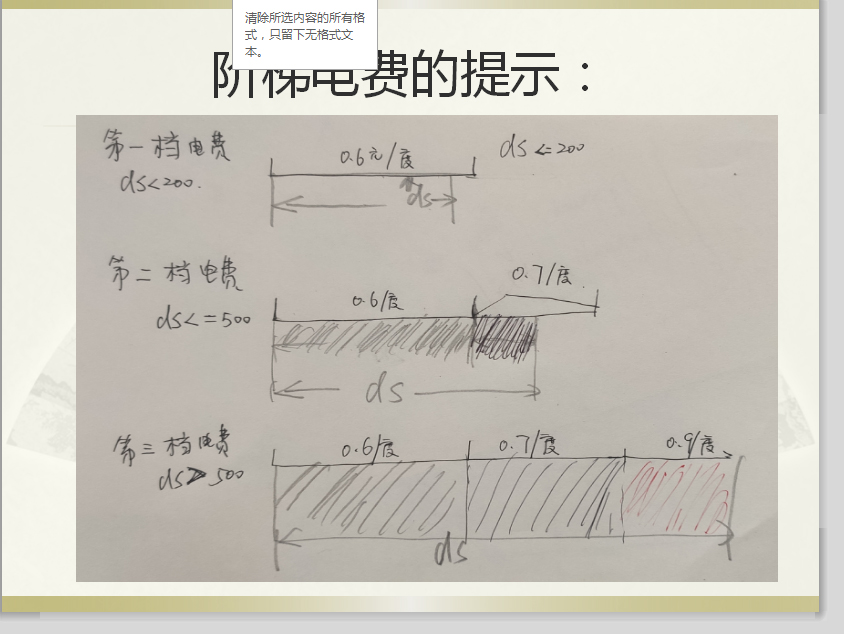 清除所选内容的所有格
式，只留下无格式文
本。
阶梯电费的提示：
第一档电费
0.6元/度
ds<=200
ds<200.
ds
第二档电费
0.7/度
0.6/度
ds<=500
ds
第三档电费
0.6/度
0.7/度
0.9/度
ds>500
ds